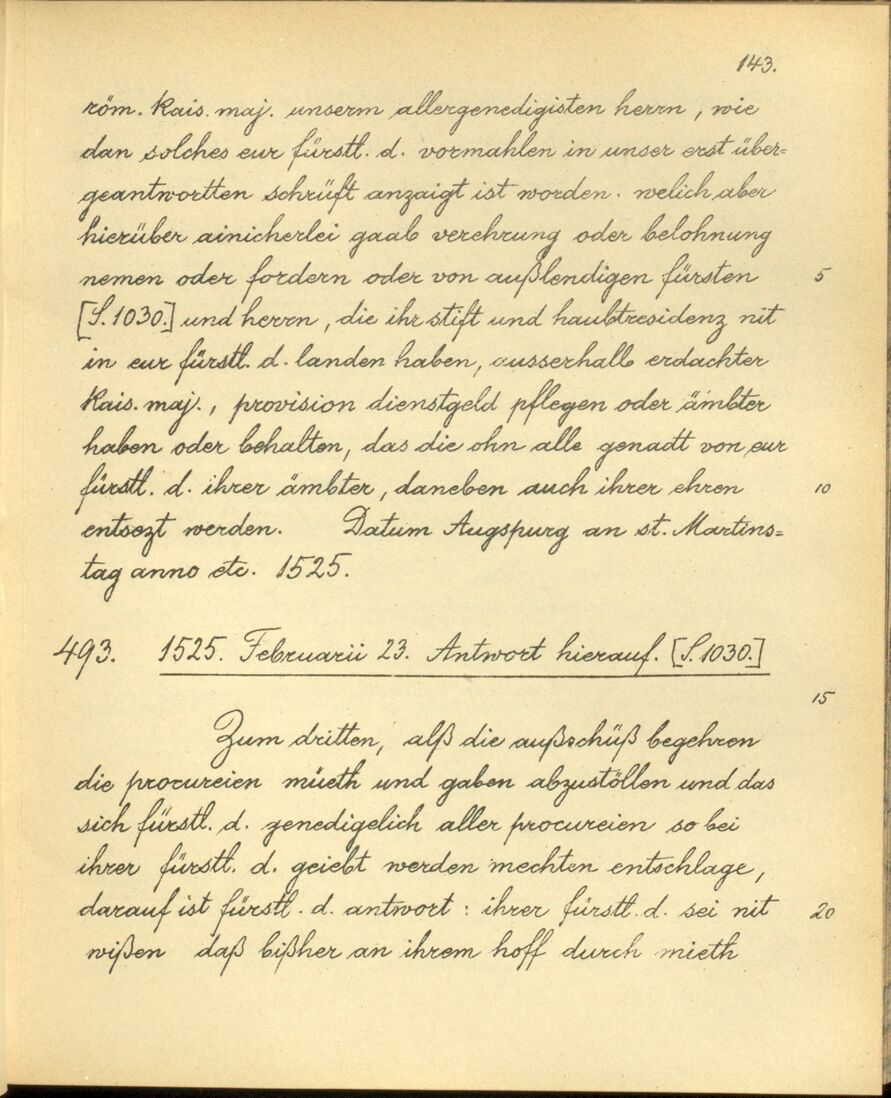 143.
röm. Kais. maj. unserm allergenedigisten herrn, wie
dan solches eur fürstl. d. vormahlen in unser erst über=
geantwortten schrüft anzaigt ist worden. welich aber
hierüber ainicherlei gaab verehrung oder belohnung
nemen oder fordern oder von außlendigen fürsten 5
[S. 1030.] und herrn, die ihr stift und haubtresidenz nit
in eur fürstl. d. landen haben, ausserhalb erdachter
Kais. maj., provision dienstgeld pflegen oder ämbter
haben oder behalten, das die ohn alle genadt von eur
fürstl. d. ihrer ämbter, daneben auch ihrer ehren 10
entsezt werden. Datum Augspurg an st. Martins=
tag anno etc. 1525.
493. 1525. Februarii 23. Antwort hierauf. [S. 1030.]
15
Zum dritten, alß die außschüß begehren
die procureien müeth und gaben abzustöllen und das
sich fürstl. d. genedigelich aller procureien so bei
ihrer fürstl. d. geiebt werden mechten entschlage,
darauf ist fürstl. d. antwort: ihrer fürstl. d. sei nit 20
wißen daß bißher an ihrem hoff durch mieth